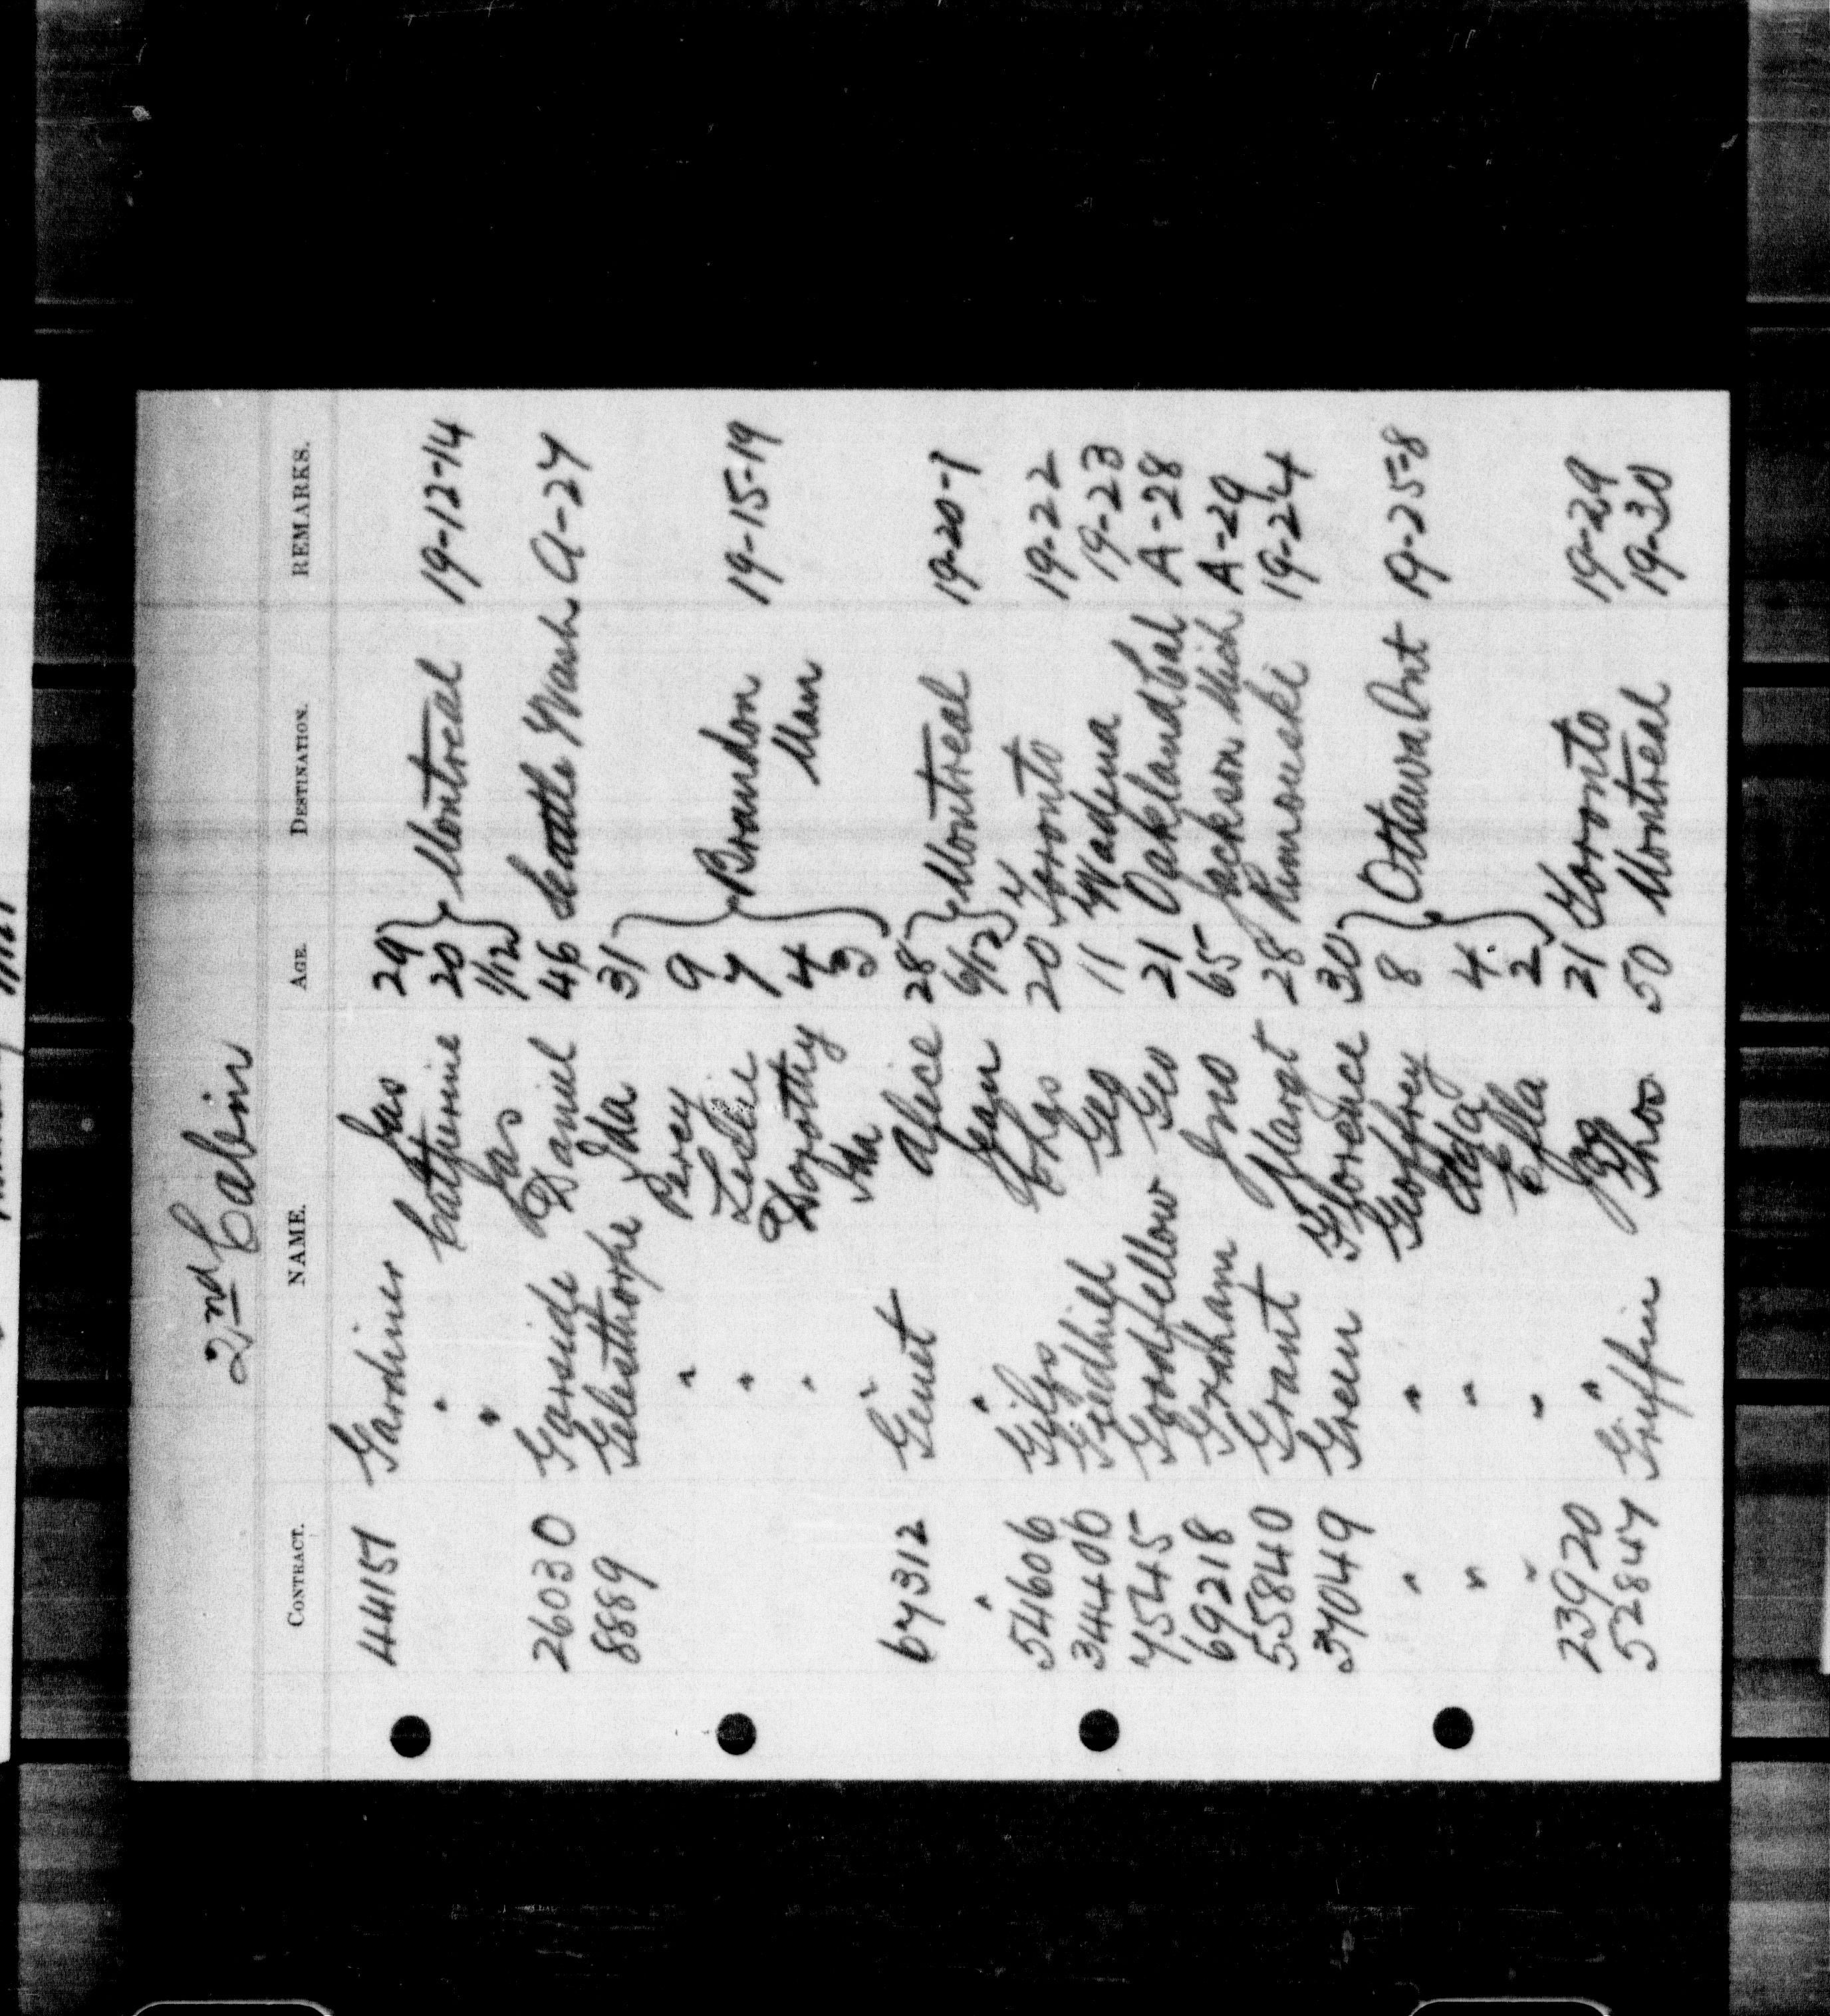 2nd Cabin
CONTRACT. NAME. AGE. DESTINATION. REMARKS.
44157 Gardiner Jas 29
" Catherine 20 Montreal 19-12-14
" Jas 1/12
26030 Garside Daniel 46 Seattle Wash A-27
8889 Gelesthorpe Ida 31
" Percy 9
" Leslie 7 Brandon 19-15-19
" Dorothy 4 Man
" Ida 3
67312 Genet Alice 28 Montreal 19-20-1
" " Jean 6/12
54606 Giles Chas 20 Toronto 19-22
34406 Gledhill Geo 11 Wadena 19-23
75745 Goodfellow Geo 21 Oakland Cal A-28
69218 Graham Jno 65 Jackson Mich A-29
55840 Grant Margt 28 Rimouski 19-24
37049 Green Florence 30
" " Geoffrey 8 Ottawa Ont 19-25-8
" " Ada 4
" " Effa 2
23920 " Jas 21 Toronto 19-29
52847 Griffin Thos 50 Montreal 19-30